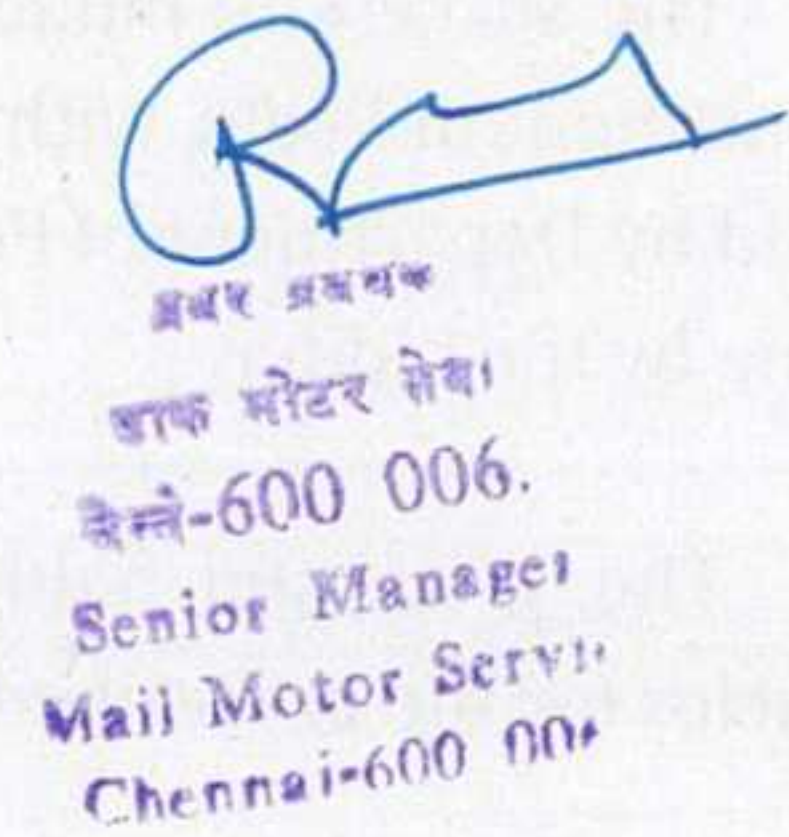 प्रबंधक
डाक मोटर सेवा
चेन्नै-600 006.
Senior Manager
Mail Motor Servi
Chennai-600 00